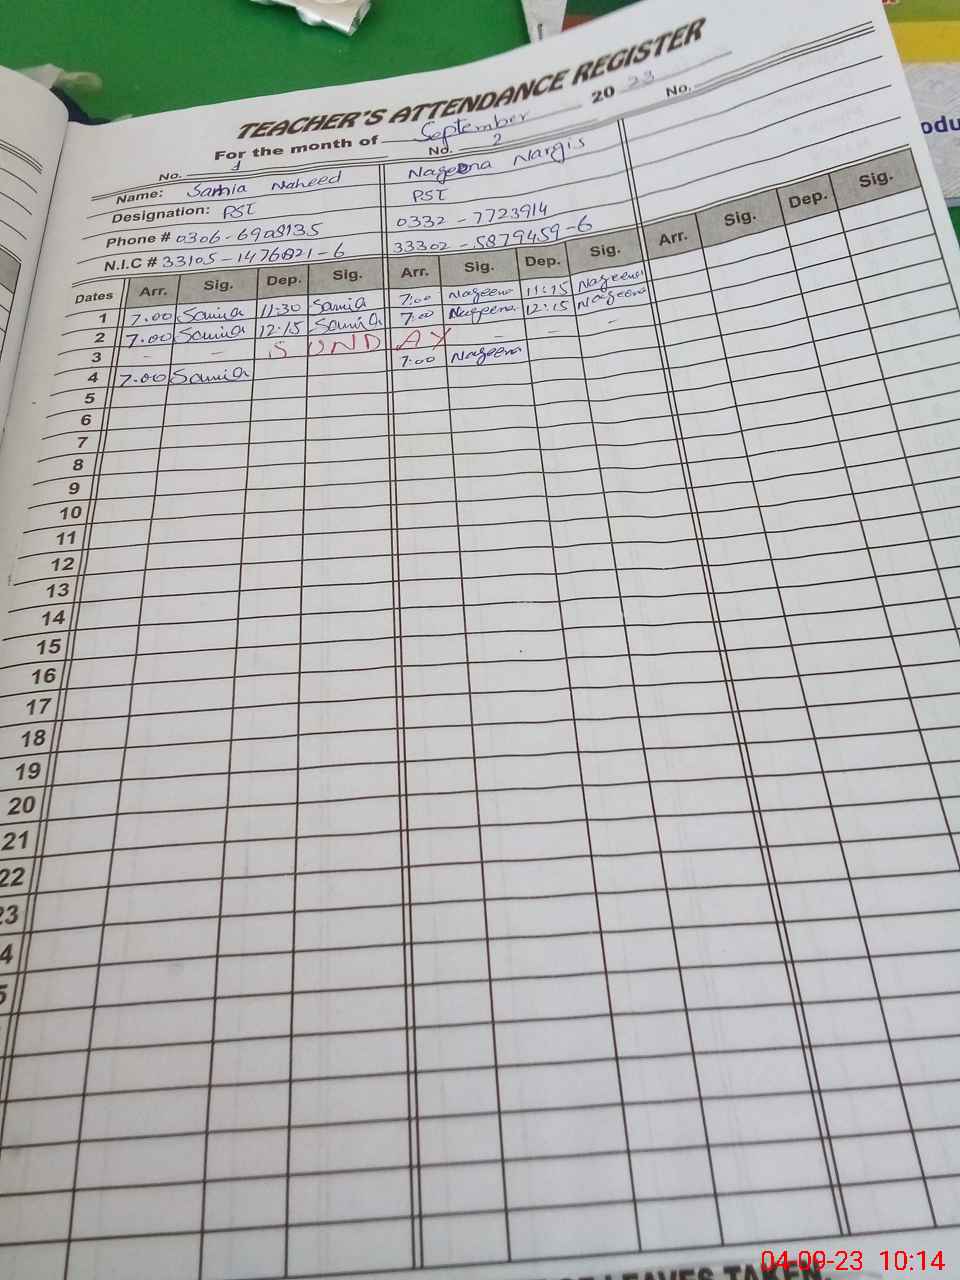 TEACHER'S ATTENDANCE REGISTER
For the month of September 2023
No. 1 No. 2 No.
Name: Samia Naheed Nageena Nargis
Designation: PST PST
Phone # 0306-6908135 0332-7723914
N.I.C # 33105-1476821-6 33302-5879459-6
Dates Arr. Sig. Dep. Sig. Arr. Sig. Dep. Sig. Arr. Sig. Dep. Sig.
1 7.00 Samia 11:30 Samia 7:00 Nageena 11:15 Nageena
2 7.00 Samia 12:15 Samia 7:00 Nageena 12:15 Nageena
3 - - SUNDAY - - -
4 7.00 Samia 7:00 Nageena
5
6
7
8
9
10
11
12
13
14
15
16
17
18
19
20
21
22
23
4
5
LEAVES TAKEN
04-09-23 10:14
odu